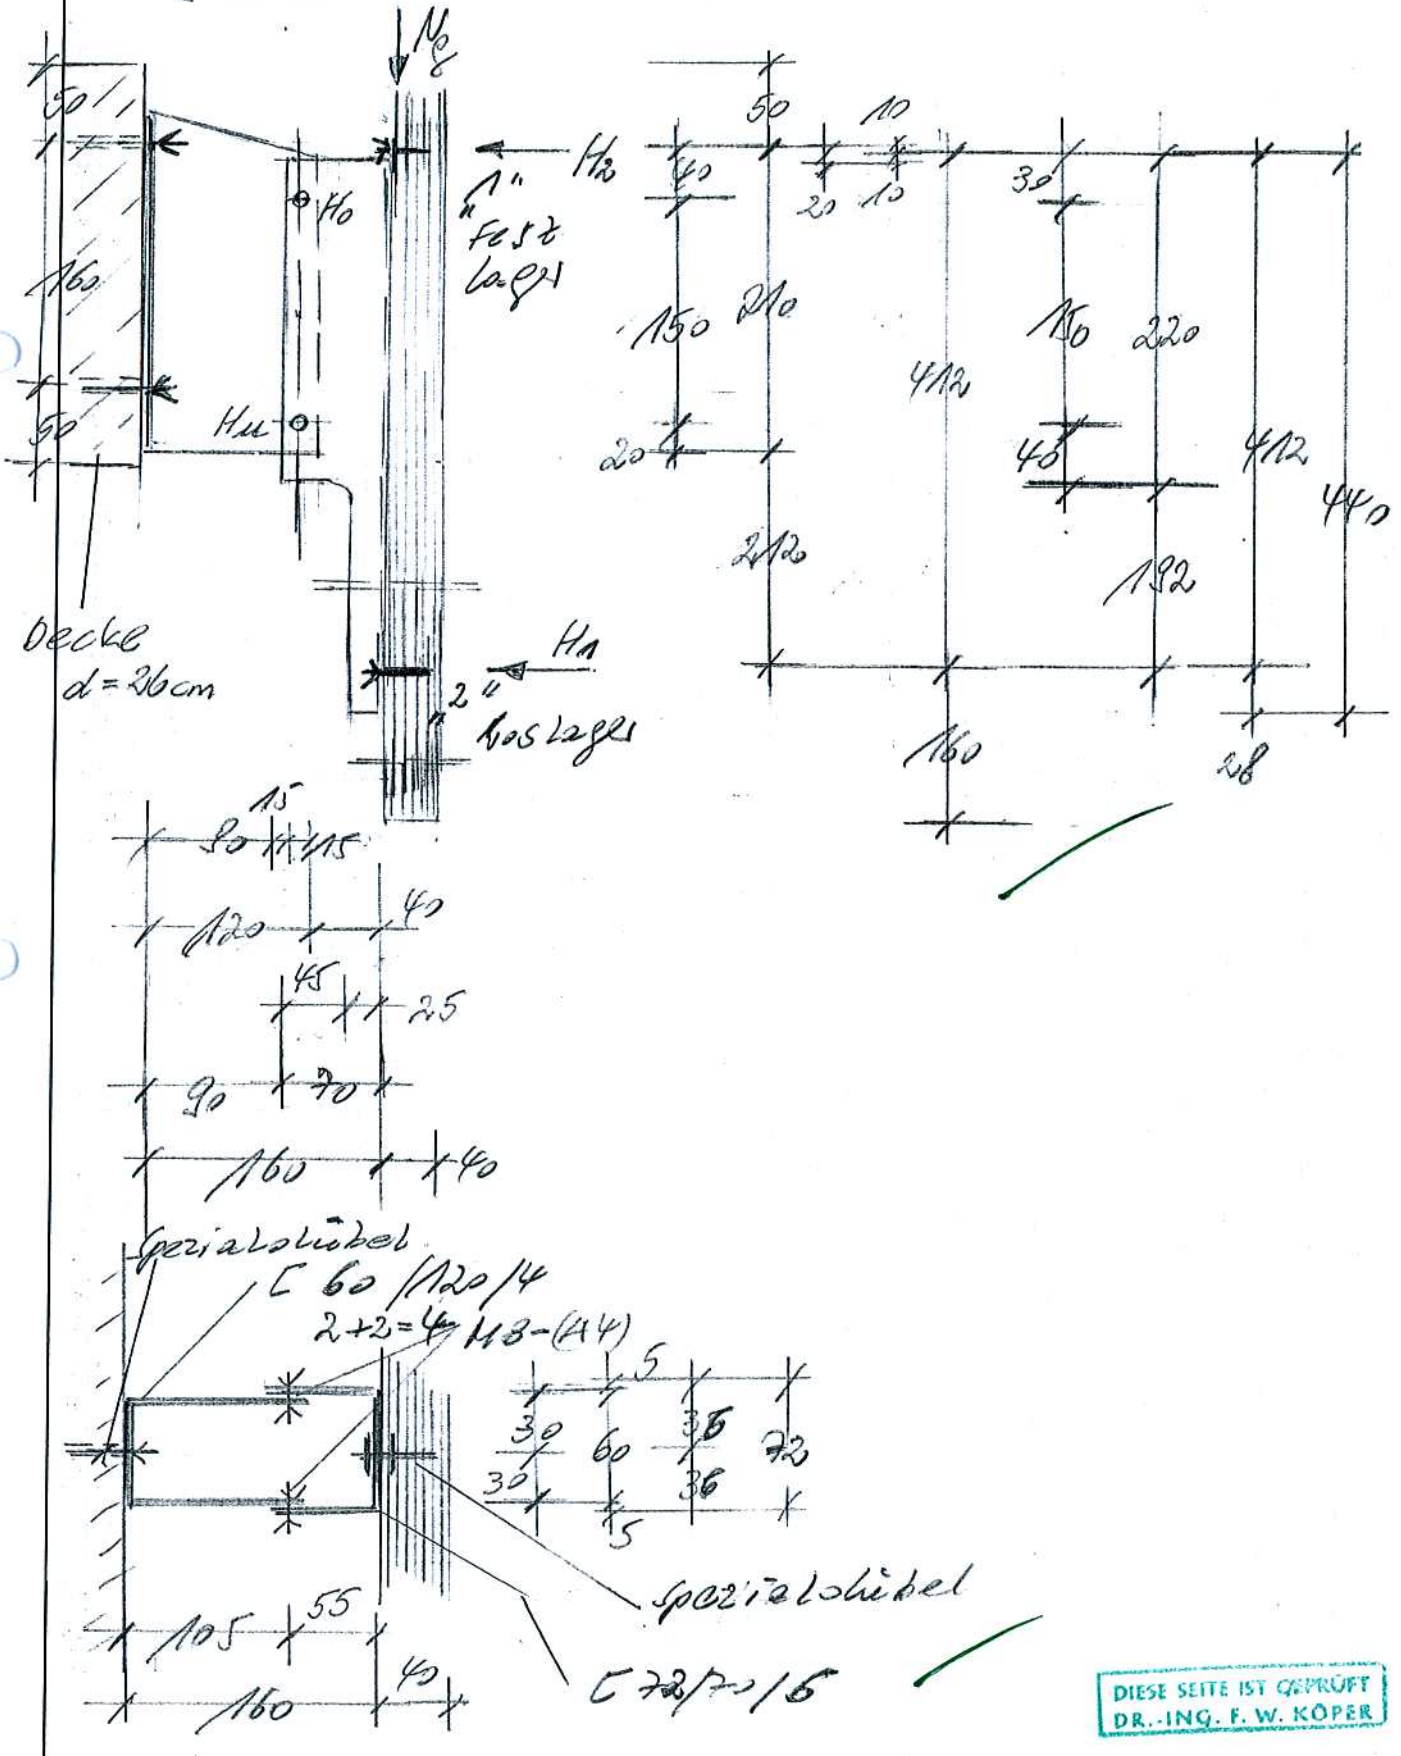 Ng
50
160
50
Ho
Hu
H2
"1"
Fest
lager
H1
"2"
Loslager
Decke
d=26cm
50
10
40
20
10
30
150
210
412
150
220
20
40
412
440
212
192
160
28
15
90
15
120
40
45
25
90
70
160
40
Spezialdübel
[ 60/120/4
2+2=4 M8-(A4)
5
30
60
36
72
30
36
5
Spezialdübel
105
55
40
160
[ 72/70/6
DIESE SEITE IST GEPRÜFT
DR.-ING. F. W. KÖPER